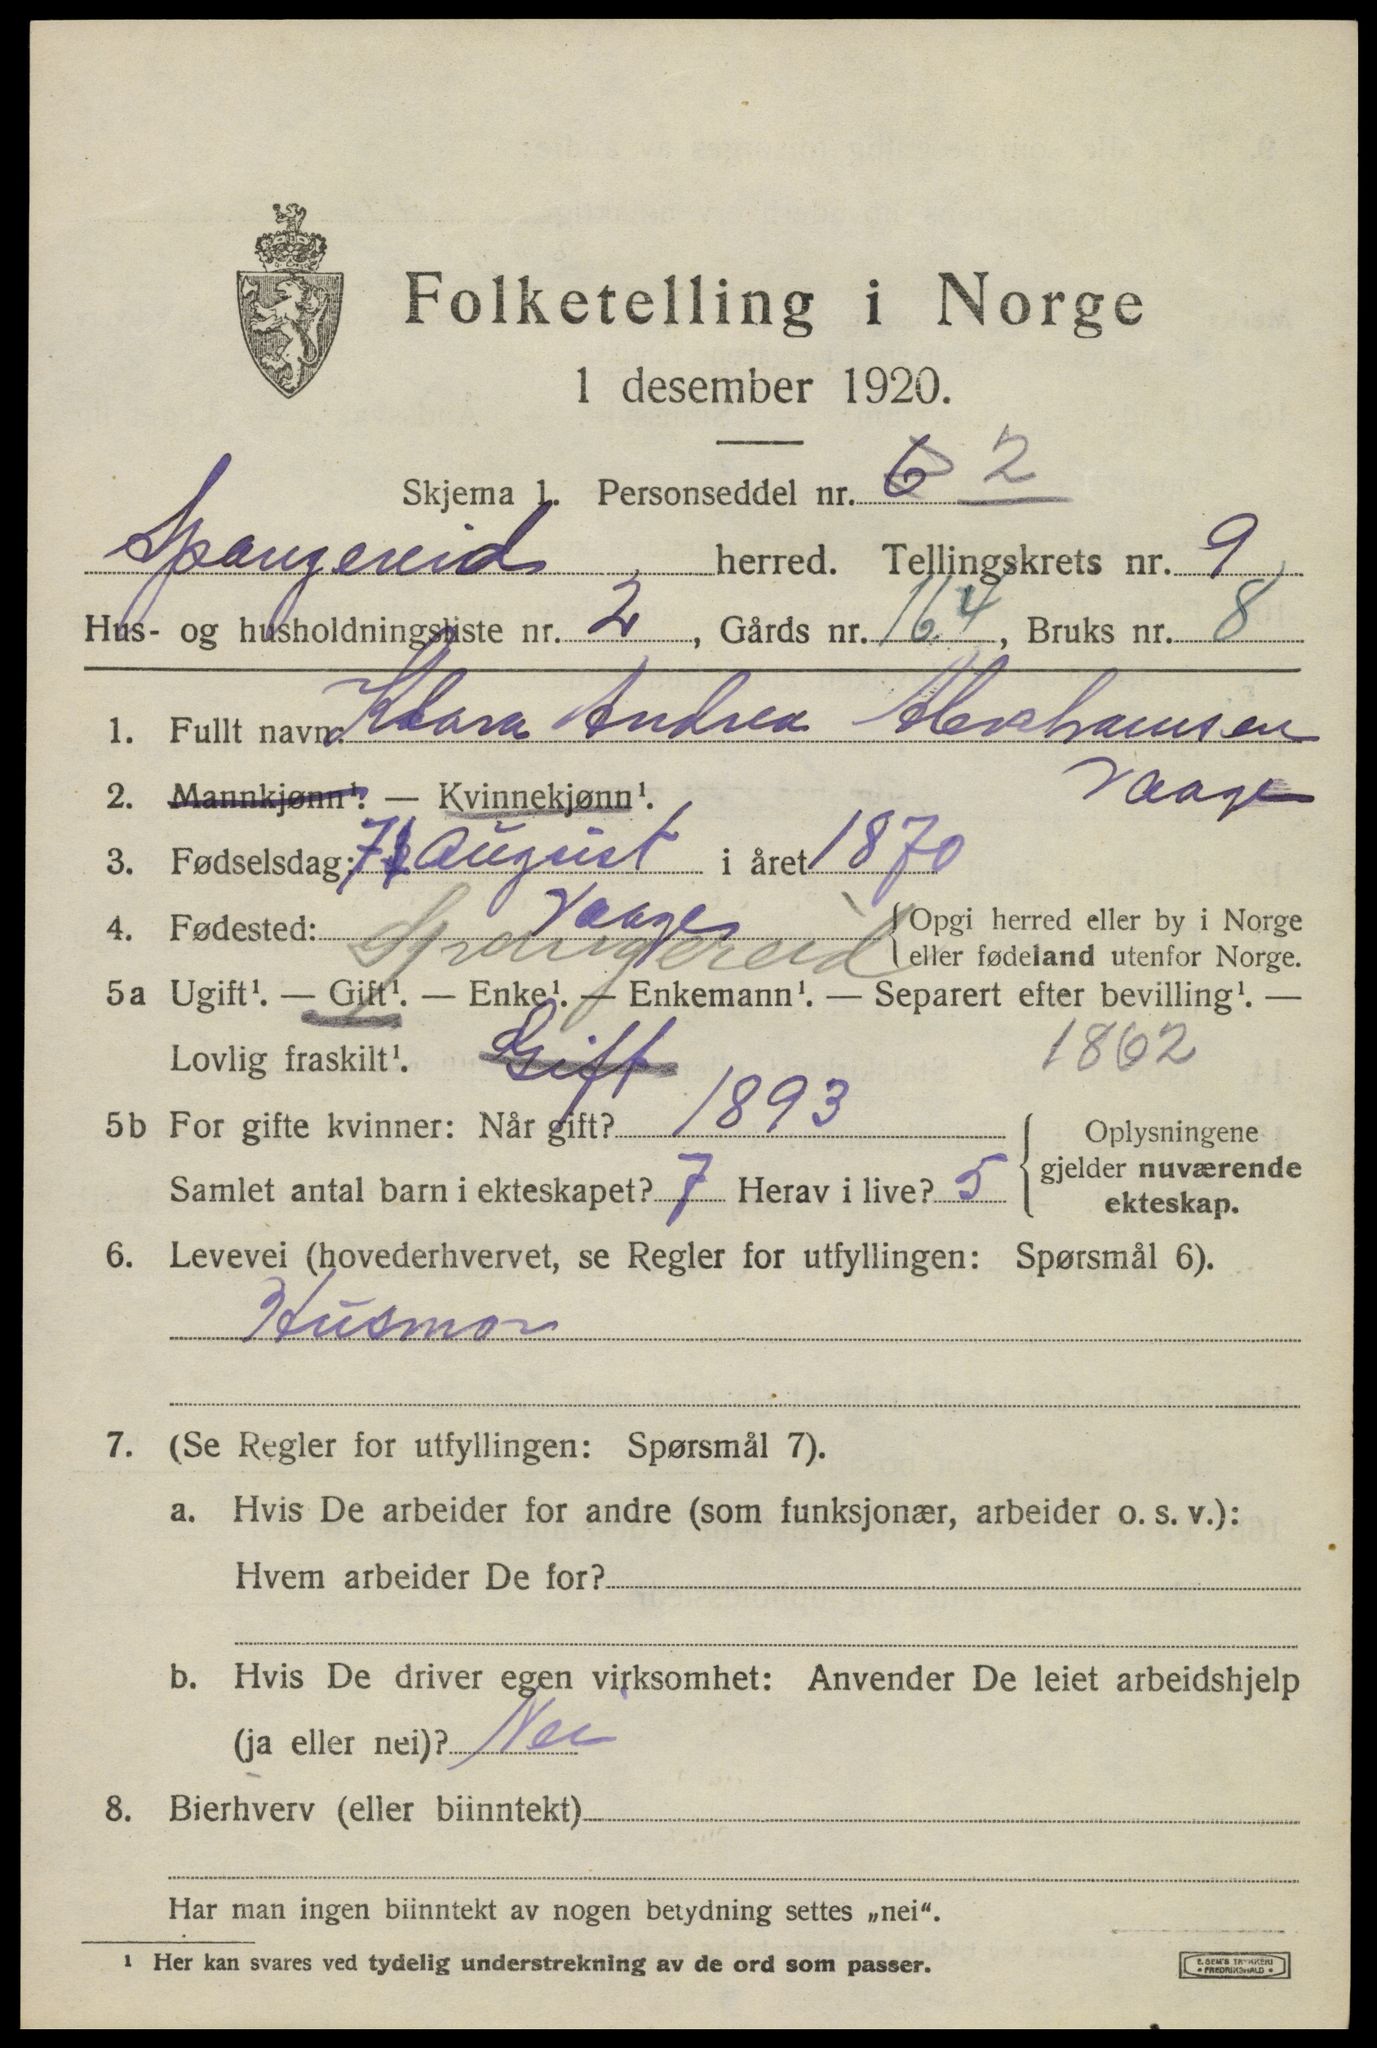 Folketelling i Norge
1 desember 1920.
Skjema 1. Personseddel nr. 6 2
Spangereid herred. Tellingskrets nr. 9
Hus- og husholdningsliste nr. 2, Gårds nr. 164, Bruks nr. 8
1. Fullt navn: Klara Andrea Abrahamsen
Vaage
2. Mannkjønn¹. — Kvinnekjønn¹.
3. Fødselsdag: 7 August i året 1870
4. Fødested: Vaage {Opgi herred eller by i Norge
Spangereid eller fødeland utenfor Norge.
5a Ugift¹. — Gift¹. — Enke¹. — Enkemann¹. — Separert efter bevilling¹. —
Lovlig fraskilt¹. Gift 1862
5b For gifte kvinner: Når gift? 1893 Oplysningene
Samlet antal barn i ekteskapet? 7 Herav i live? 5 gjelder nuværende
ekteskap.
6. Levevei (hovederhvervet, se Regler for utfyllingen: Spørsmål 6).
Husmor
7. (Se Regler for utfyllingen: Spørsmål 7).
a. Hvis De arbeider for andre (som funksjonær, arbeider o. s. v.):
Hvem arbeider De for?
b. Hvis De driver egen virksomhet: Anvender De leiet arbeidshjelp
(ja eller nei)? Nei
8. Bierhverv (eller biinntekt)
Har man ingen biinntekt av nogen betydning settes „nei“.
¹ Her kan svares ved tydelig understrekning av de ord som passer.
E. SEM'S TRYKKERI
• FREDRIKSHALD •